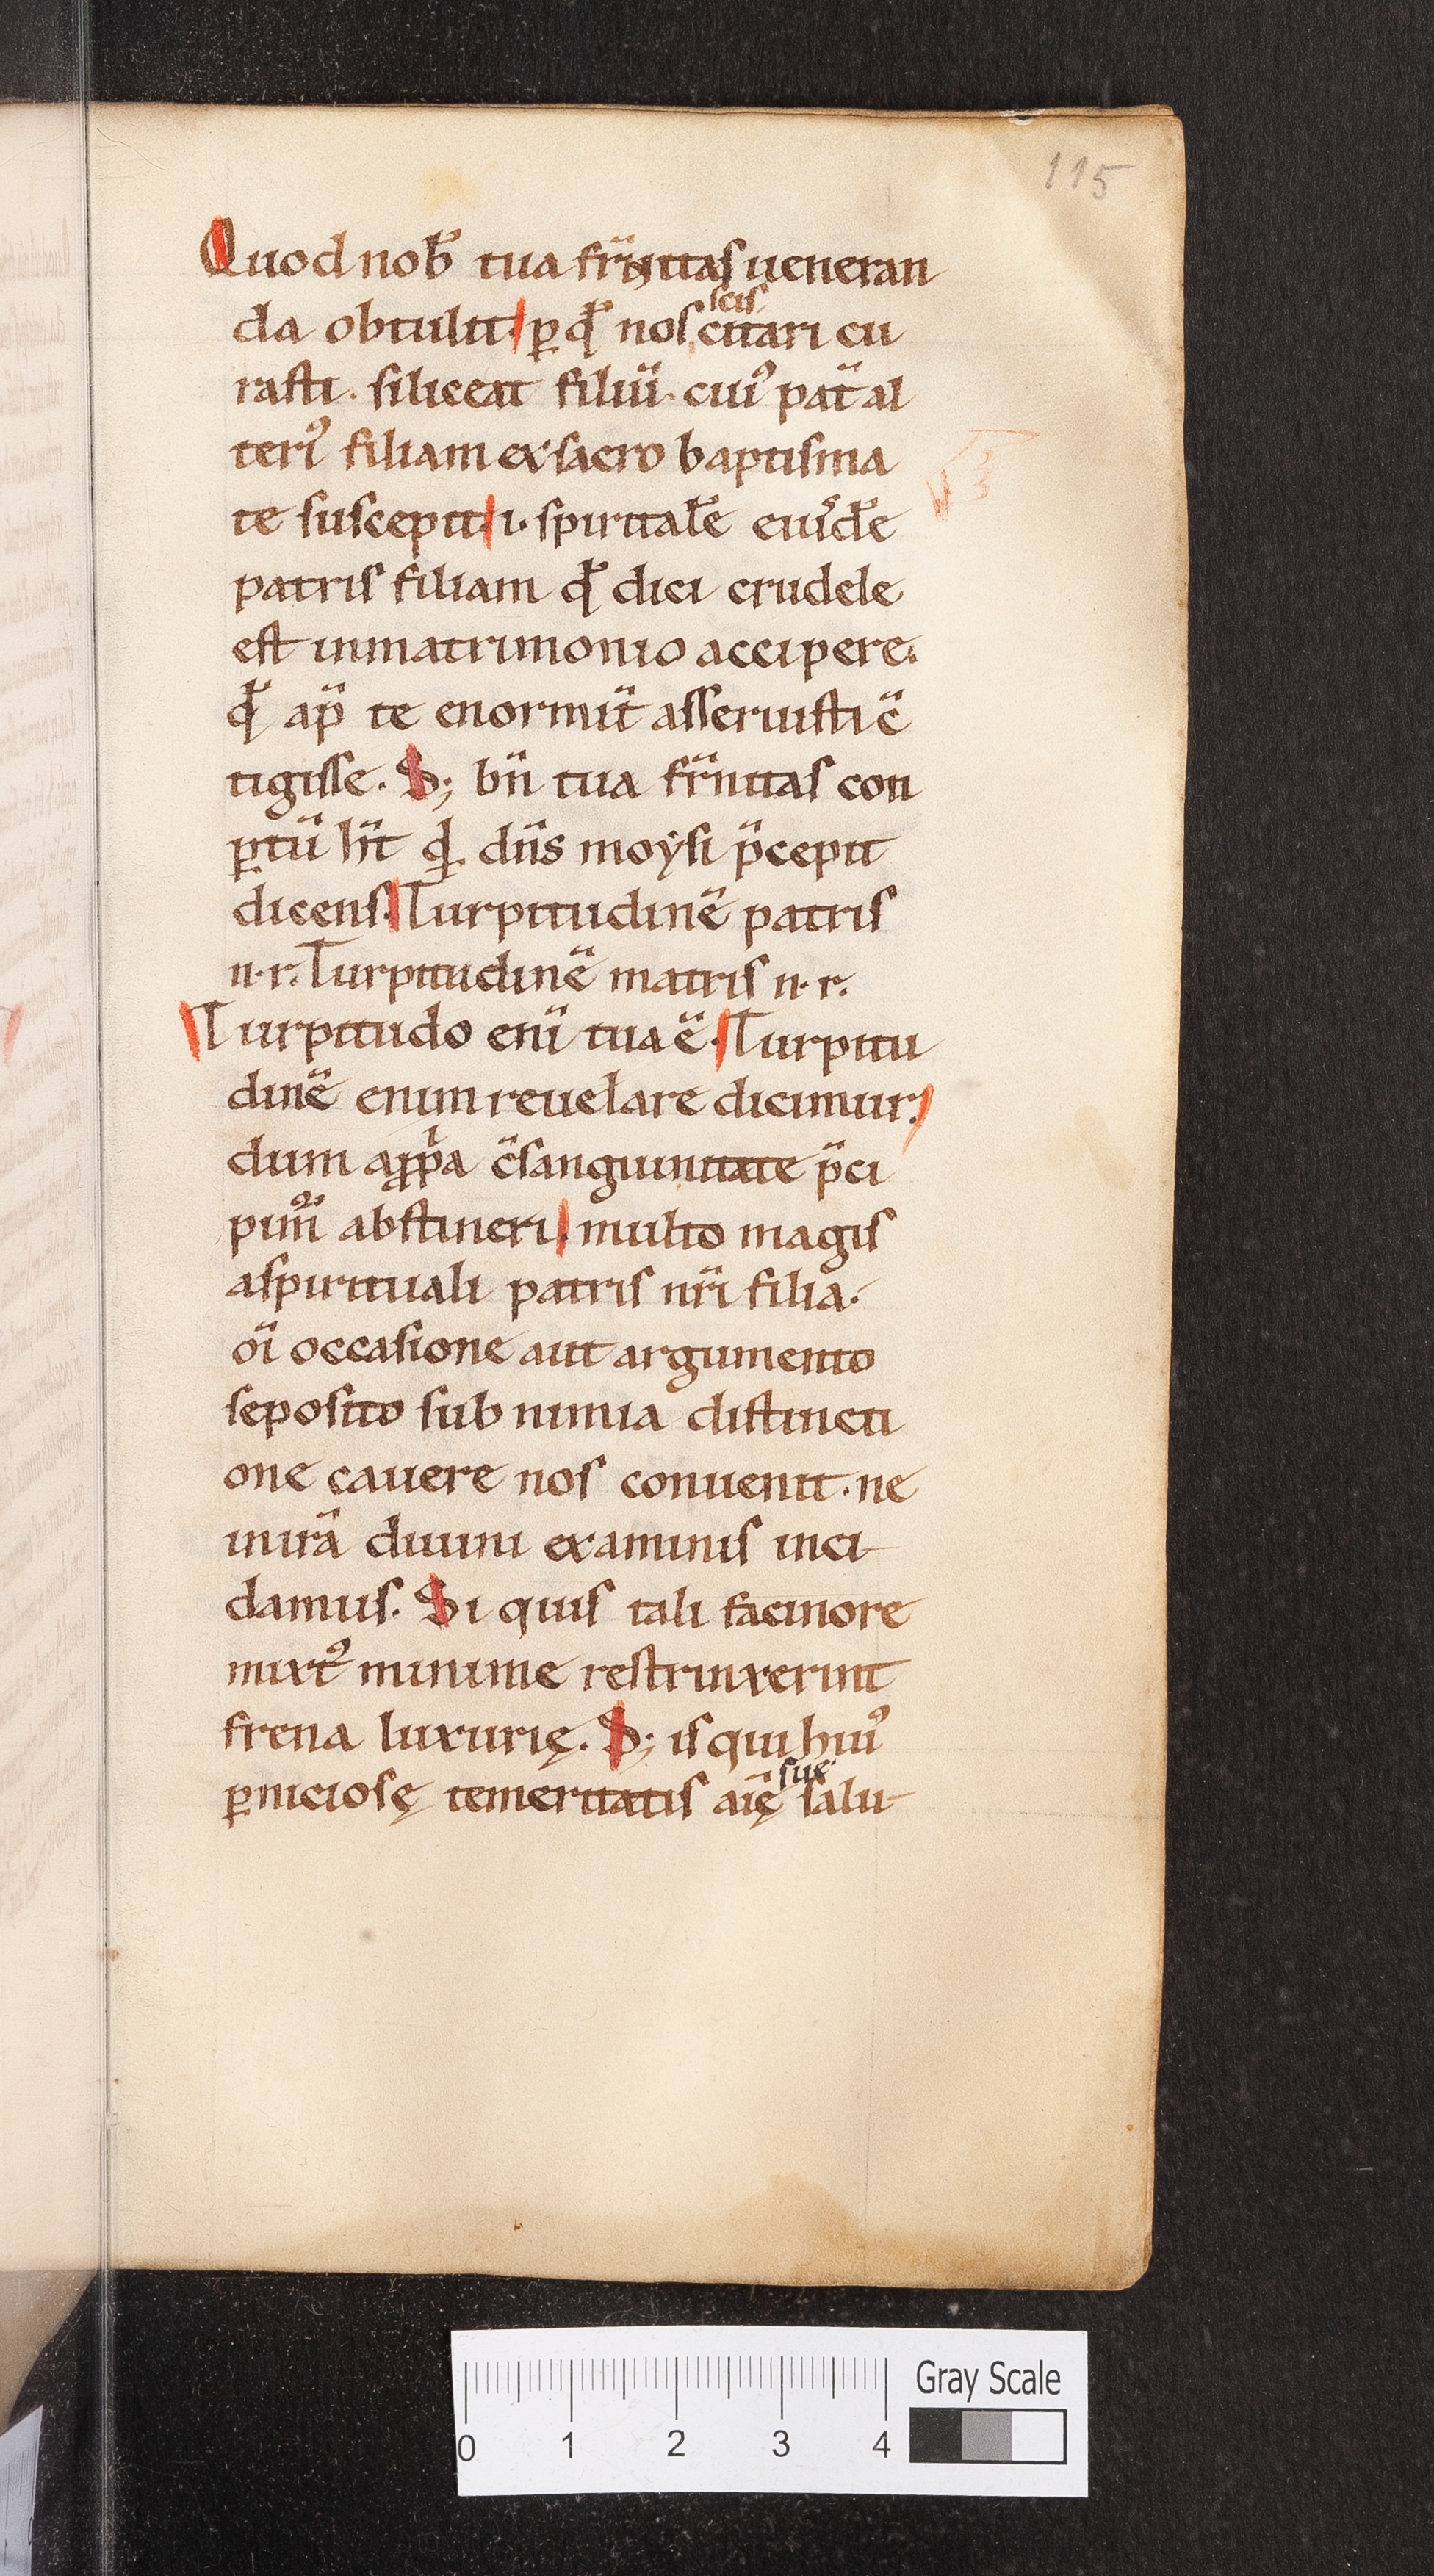 115
Quod nob̄ tua fr̄nitas ueneran
da obtulit. ꝑ qđ nos scis citari cu
rasti. si liceat filiū. cui᾽ pat̄ al
teri᾽ filiam ex sacro baptisma
te suscepit. i. spiritale̅ eiusdē
patris filiam qđ dici crudele
est in matrimonio accipere.
qđ ap̄ te enormit̄ asseruisti c̄
tigisse. S; bn̄ tua fr̄nitas con
ꝑtū hт̄ qđ dn̄s moẏsi p̄cepit
dicens. Turpitudinē patris
n. r. Turpitudinē matris n. r.
Turpitudo enī tua ē. Turpitu
dinē enim reuelare dicimur.
dum a ꝓpͥa c̄sanguinitate p̄ci
pim᾽ abstineri. multo magis
a spirituali patris nr̄i filia.
oī occasione aut argumento
seposito sub nimia districti
one cauere nos conuenit. ne
in irā diuini examinis inci
damus. Si quis tali facinore
mixt᾽ minime restrinxerint
frena luxurię. S; is qui hui᾽
ꝑniciosę temeritatis aīę suę salu
0 1 2 3 4
Gray Scale